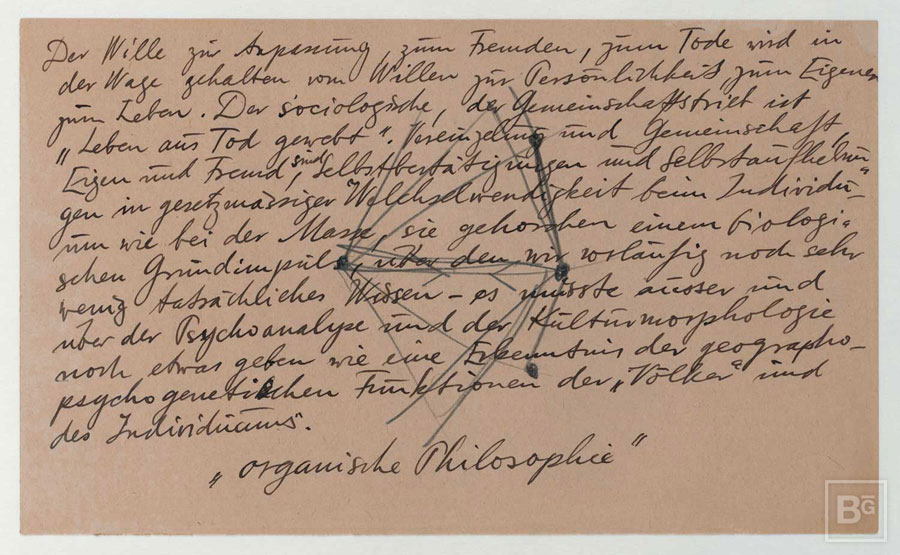 Der Wille zur Anpassung, zum Fremden, zum Tode wird in
der Wage gehalten vom Willen zur Persönlichkeit, zum Eigenen
zum Leben. Der sociologische, der Gemeinschaftstrieb ist
„Leben aus Tod gewebt“. Vereinzelung und Gemeinschaft,
Eigen und Fremd, sind Selbstbestätigungen und Selbstaufhebun-
gen in gesetzmässiger Wechselwendigkeit beim Individu-
um wie bei der Masse, sie gehorchen einem biologi-
schen Grundimpuls, über den wir vorläufig noch sehr
wenig tatsächliches Wissen – es müsste ausser und
über der Psychoanalyse und der Kulturmorphologie
noch etwas geben wie eine Erkenntnis der geographo-
psychogenetischen Funktionen der „Völker“ und
des Individuums.
„organische Philosophie“
BG